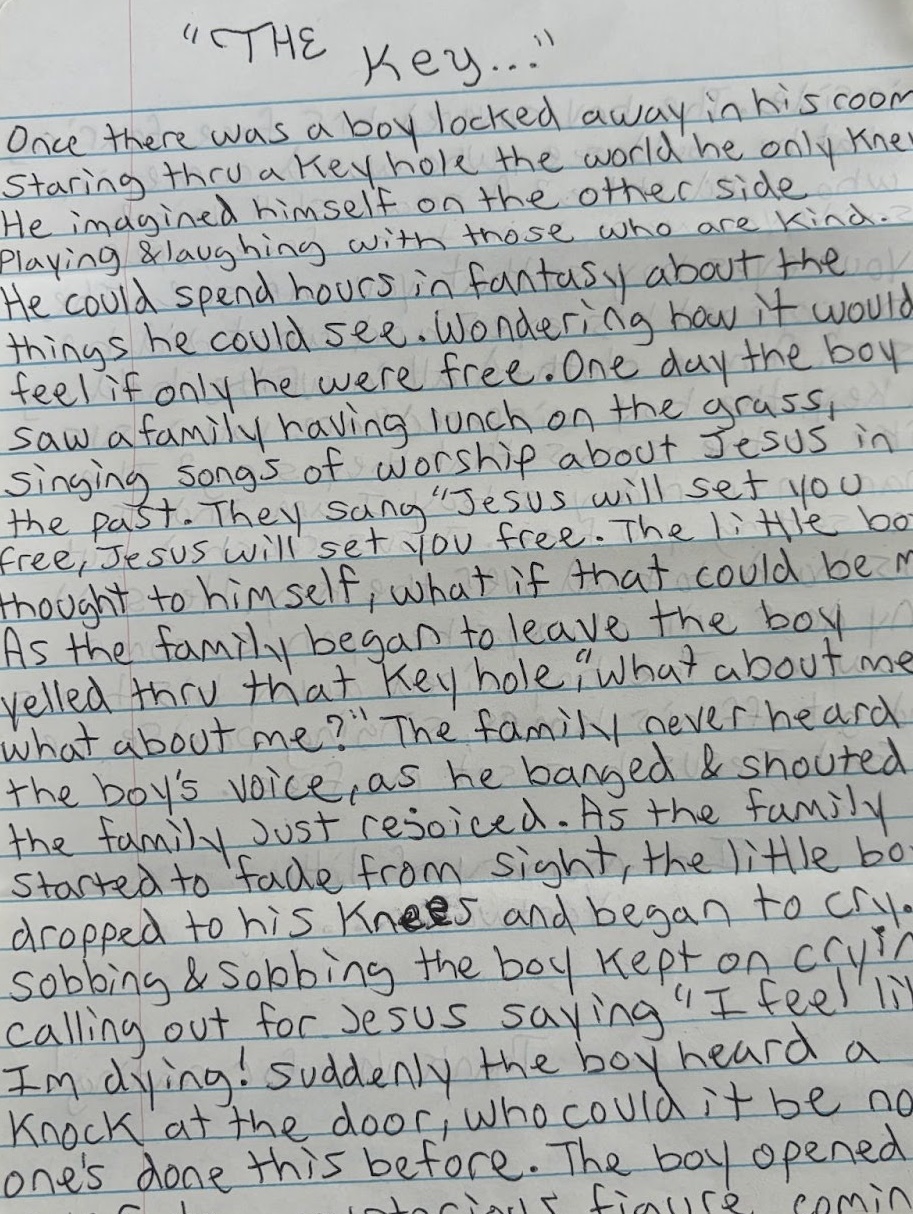 "THE Key..."
Once there was a boy locked away in his room
Staring thru a Key hole the world he only Knew
He imagined himself on the other side
Playing & laughing with those who are Kind.
He could spend hours in fantasy about the
things he could see. Wondering how it would
feel if only he were free. One day the boy
saw a family having lunch on the grass,
singing songs of worship about Jesus in
the past. They sang "Jesus will set you
free, Jesus will set you free. The little bo
thought to himself, what if that could be m
As the family began to leave the boy
yelled thru that Key hole, "what about me
what about me?" The family never heard
the boy's voice, as he banged & shouted
the family just rejoiced. As the family
started to fade from sight, the little bo
dropped to his Knees and began to cry.
Sobbing & sobbing the boy Kept on cryin
calling out for Jesus saying "I feel li
Im dying! Suddenly the boy heard a
Knock at the door, who could it be no
one's done this before. The boy opened
figure comin